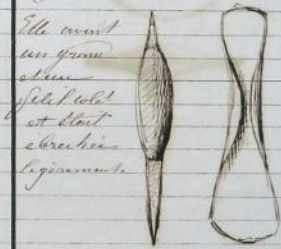 Elle avait
un gros
et un
petit coté
et était
ébrechée
légèrement.